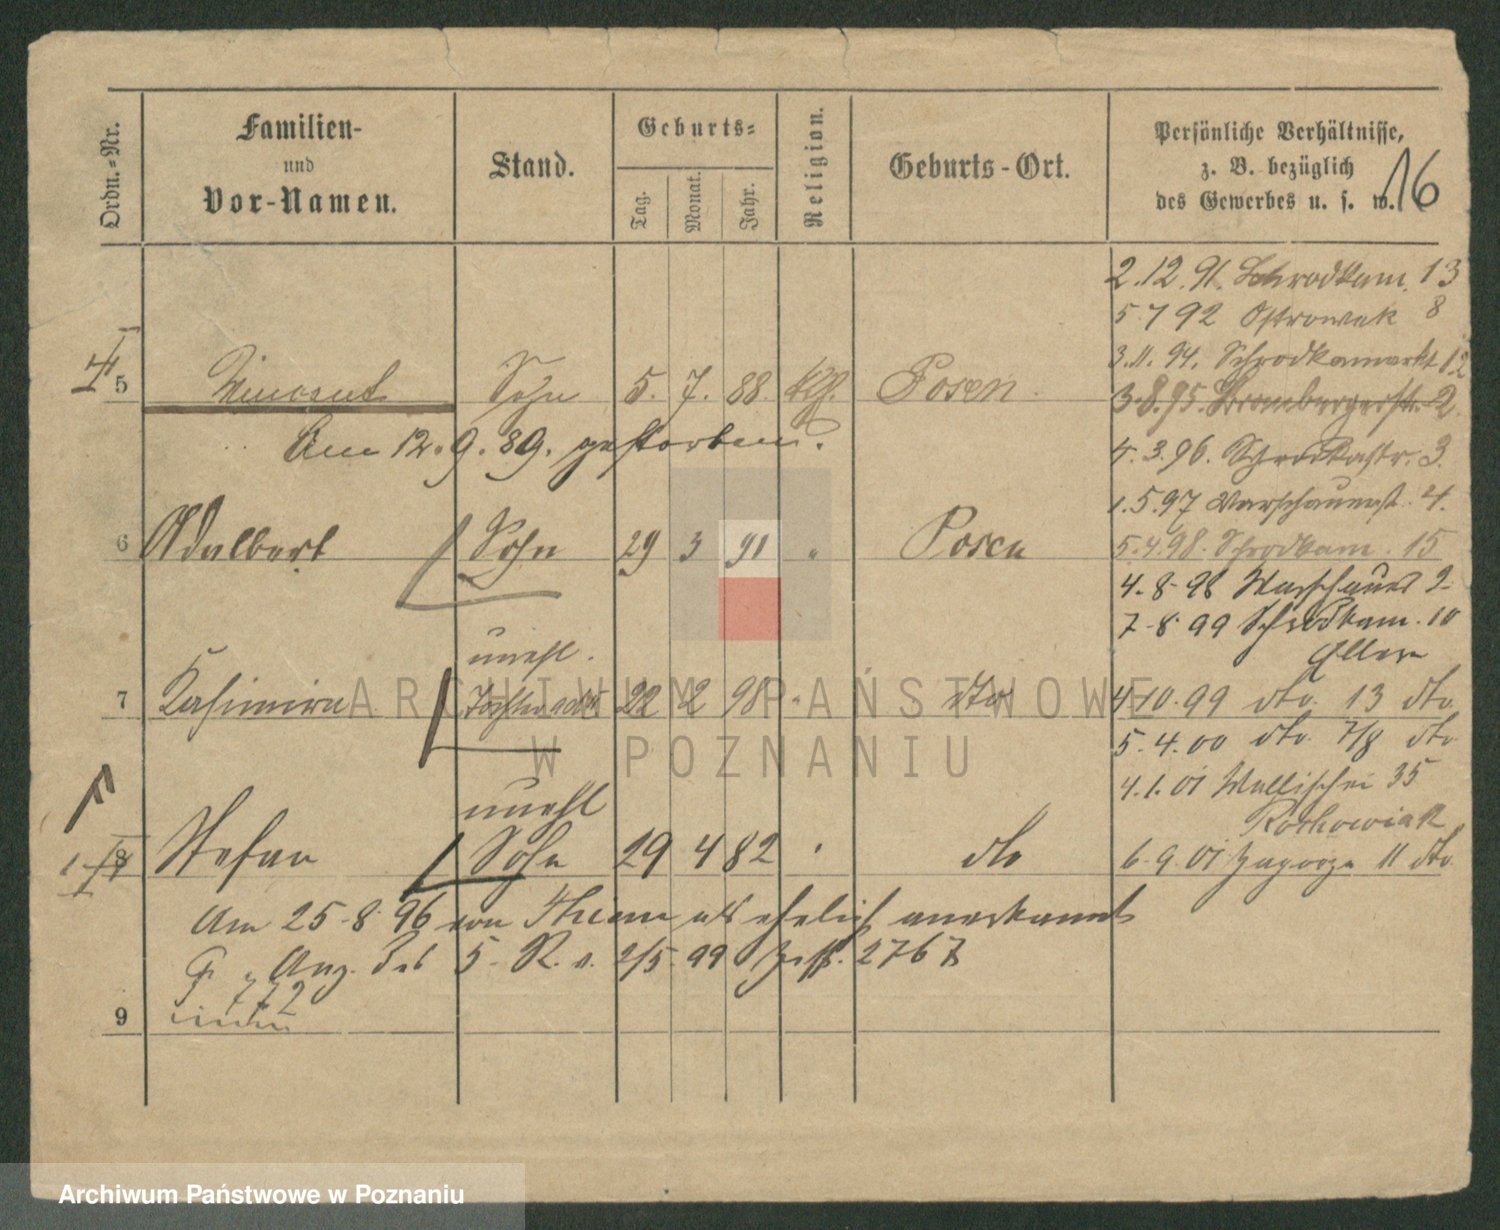 Ordn.-Nr.
Familien-
und
Vor-Namen.
Stand.
Geburts-
Tag.
Monat.
Jahr.
Religion.
Geburts-Ort.
Persönliche Verhältnisse,
z. B. bezüglich
des Gewerbes u. s. w.
16
2.12.91. Schrodkam. 13
5 7 92 Ostrowek 8
3.11.94. Schrodkamarkt 12
3.8.95. Brombergerstr. 2.
5 Vincent Sohn 5. 7. 88. kth. Posen
Am 12.9.89. gestorben.
4.3.96. Schrodkastr. 3.
1.5.97 Warschauerst. 4.
6 Adalbert Sohn 29 3 91 " Posen
5.4.98. Schrodkam. 15
4.8.98 Warschauer 2
7.8.99 Schrodkam. 10
unehl.
7 Kasimira Tochter 22 2 98 " dto
4.10.99 dto. 13 dto.
5.4.00 dto. 7/8 dto.
4.1.01 Wallischei 35
Rochowiak
unehl
8 Stefan Sohn 29 4 82 dto
6.9.01 Zagorze 11 dto.
Am 25.8.96 von als ehelich anerkannt
Anz. des 5. R. v. 2/5.99 2767
772
9
ARCHIWUM PAŃSTWOWE
W POZNANIU
Archiwum Państwowe w Poznaniu